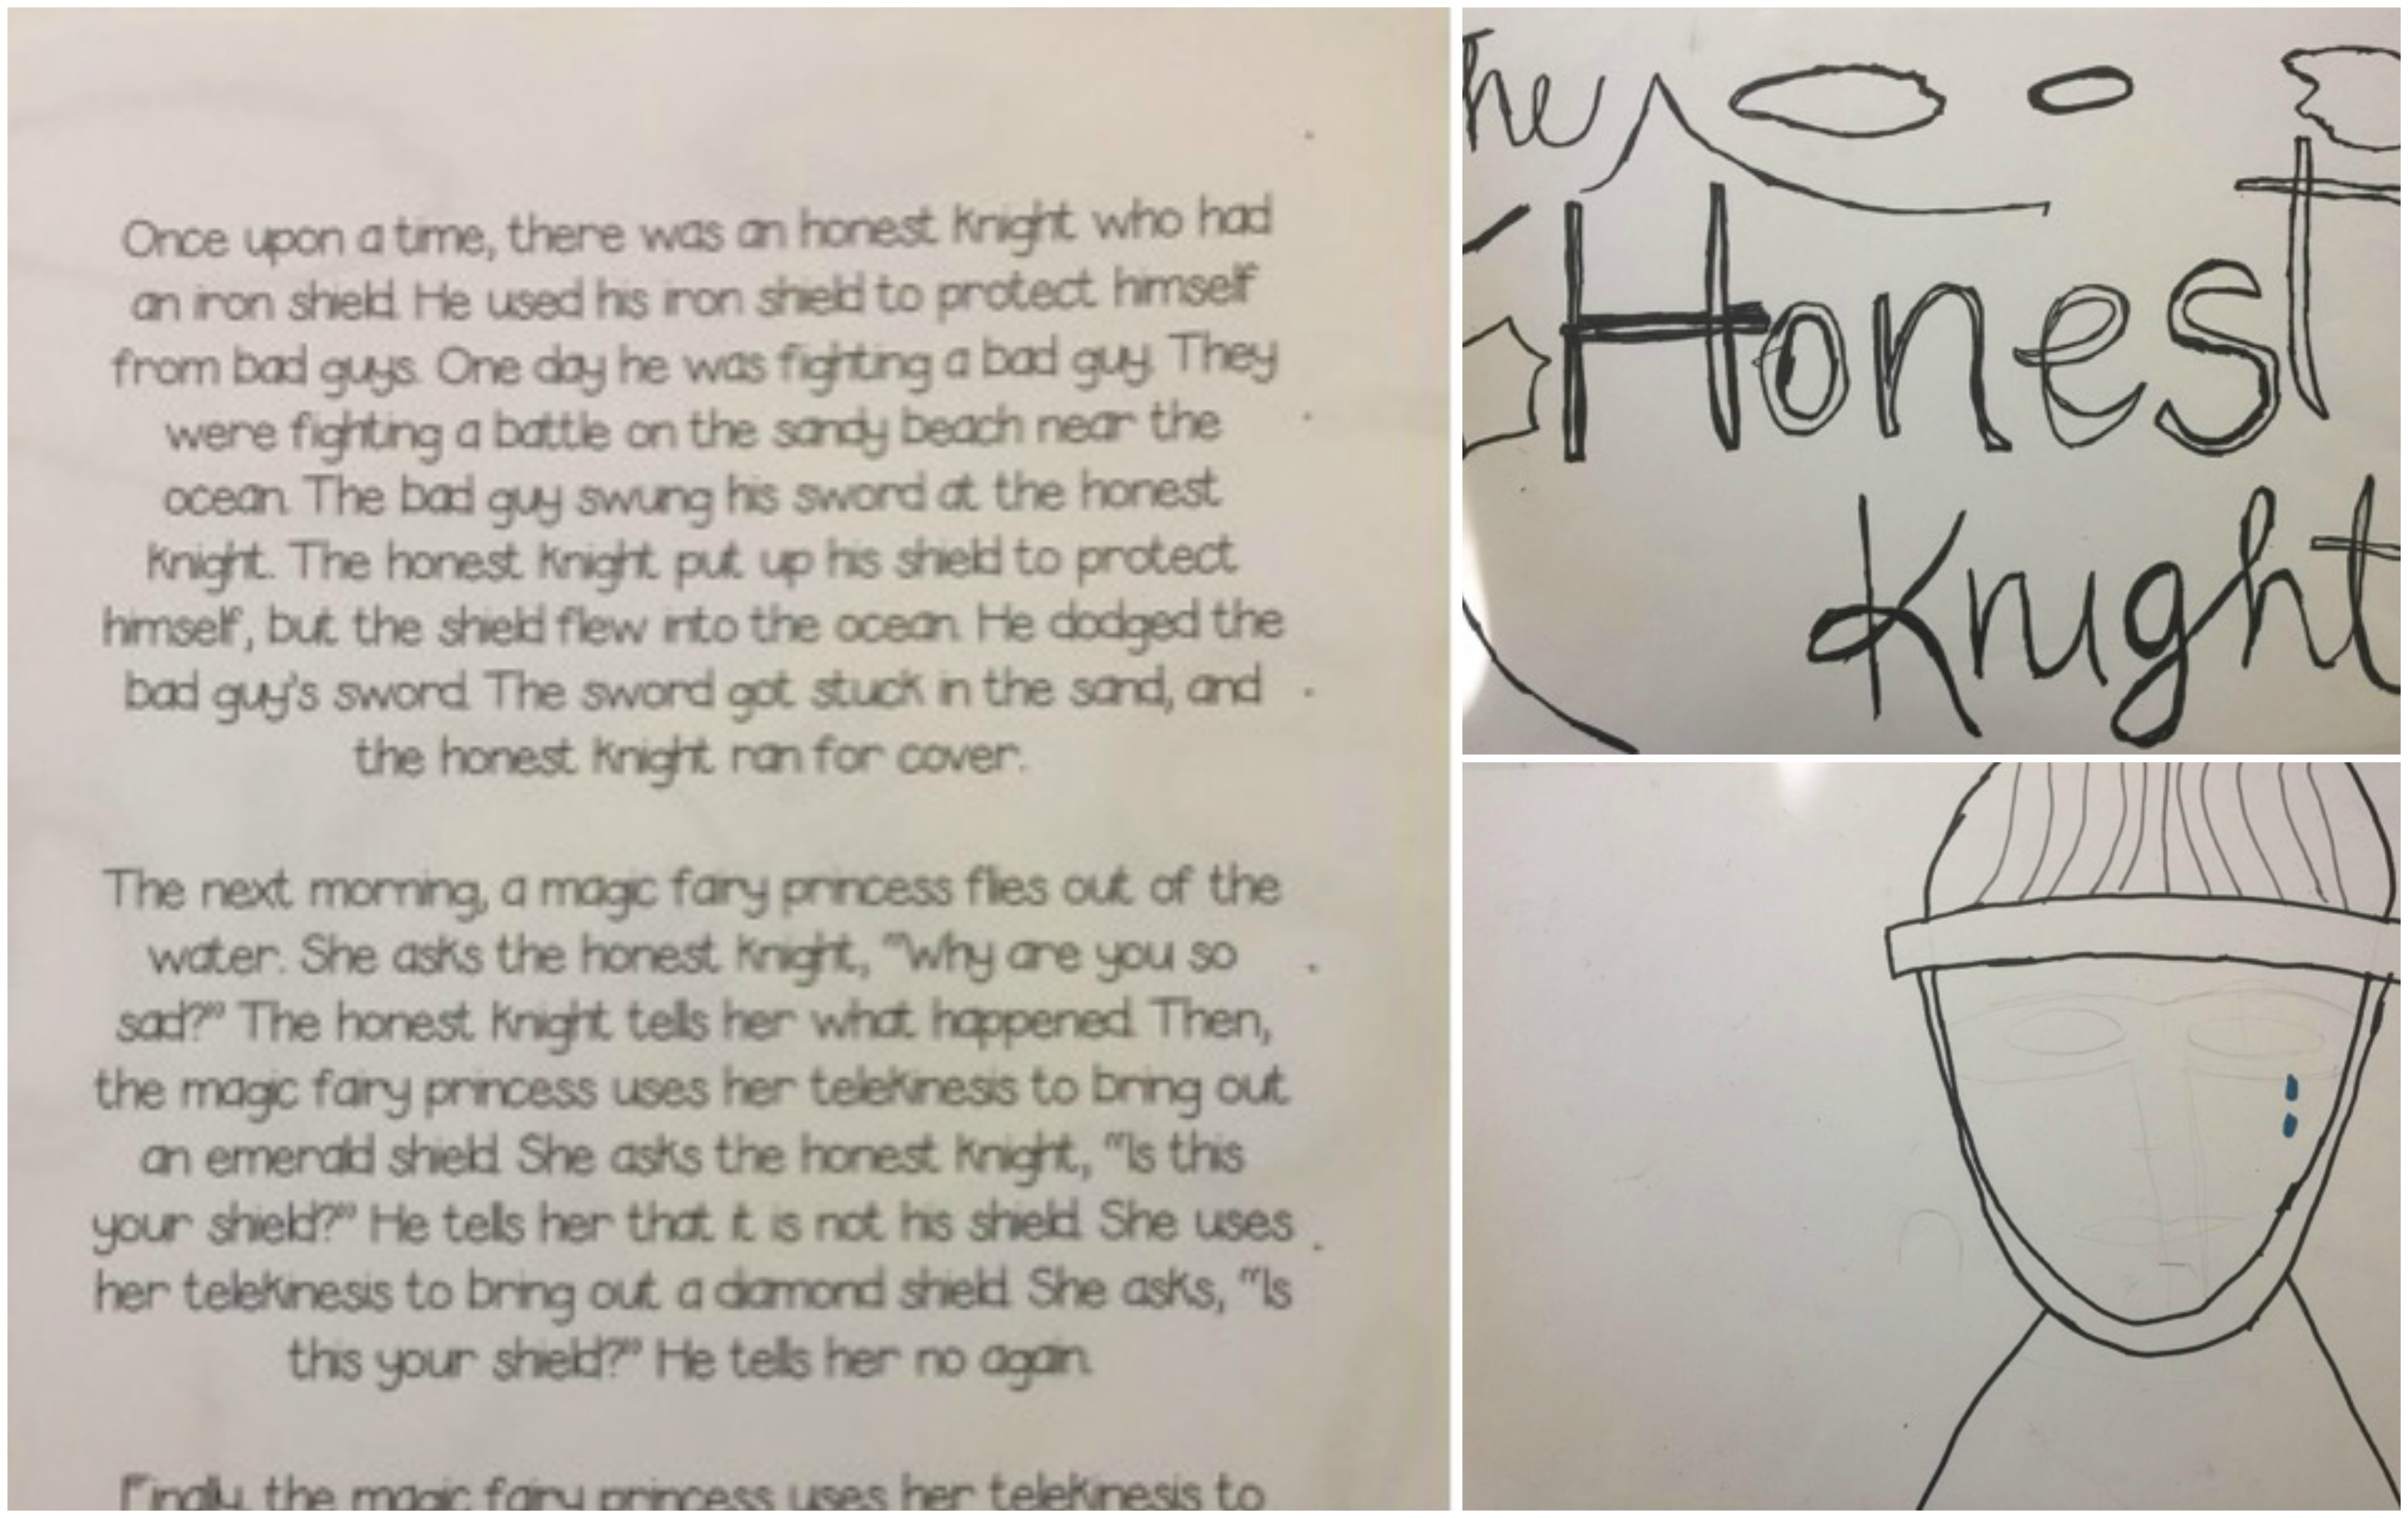 Once upon a time, there was an honest knight who had
an iron shield. He used his iron shield to protect himself
from bad guys. One day he was fighting a bad guy. They
were fighting a battle on the sandy beach near the
ocean. The bad guy swung his sword at the honest
knight. The honest knight put up his shield to protect
himself, but the shield flew into the ocean. He dodged the
bad guy's sword. The sword got stuck in the sand, and
the honest knight ran for cover.
The next morning, a magic fairy princess flies out of the
water. She asks the honest knight, "Why are you so
sad?" The honest knight tells her what happened. Then,
the magic fairy princess uses her telekinesis to bring out
an emerald shield. She asks the honest knight, "Is this
your shield?" He tells her that it is not his shield. She uses
her telekinesis to bring out a diamond shield. She asks, "Is
this your shield?" He tells her no again.
Finally, the magic fairy princess uses her telekinesis to
he
Honest
Knight